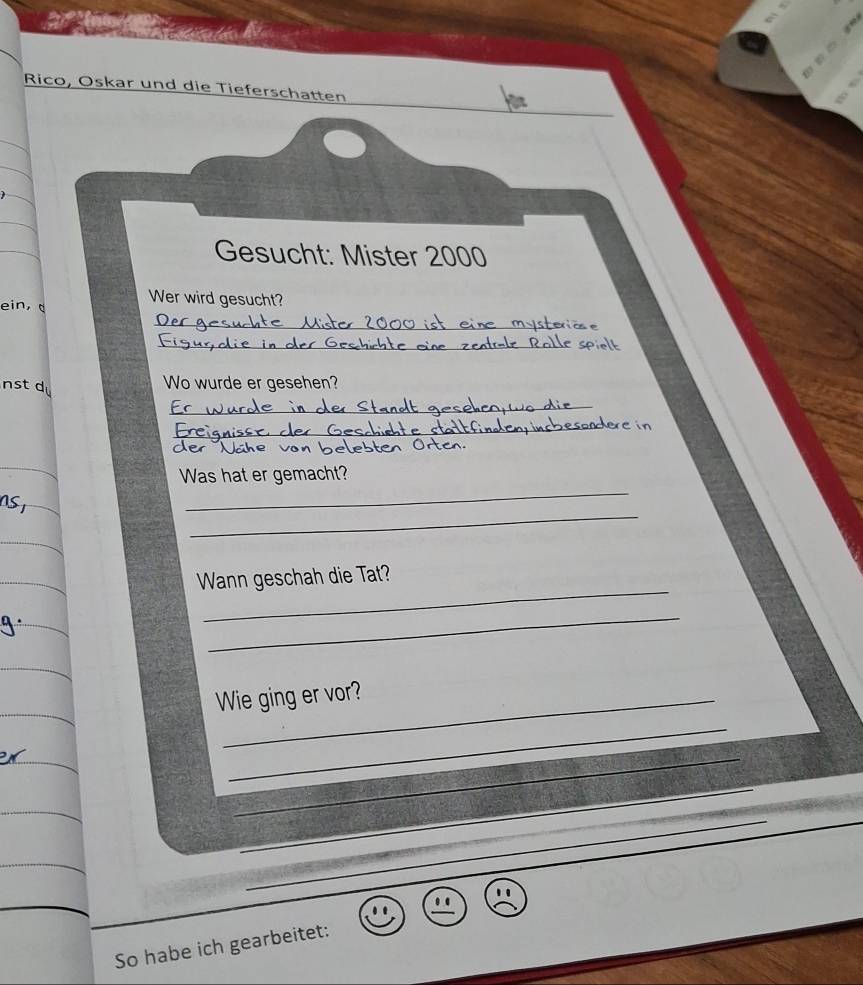 Rico, Oskar und die Tieferschatten
Gesucht: Mister 2000
Wer wird gesucht?
Der gesuchte Mister 2000 ist eine mysteriöse
Figur, die in der Geschichte eine zentrale Rolle spielt
Wo wurde er gesehen?
Er wurde in der Standt gesehen, wo die
Ereignisse der Geschichte stattfinden, insbesondere in
der Nähe von belebten Orten.
Was hat er gemacht?
Wann geschah die Tat?
Wie ging er vor?
So habe ich gearbeitet:
ein, d
nst du
ns,
g.
er